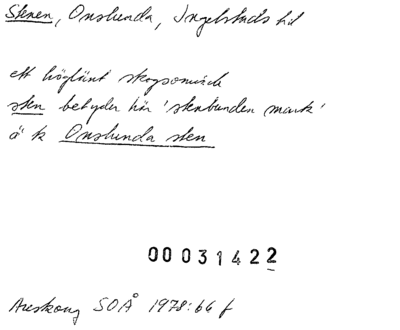 Stenen, Onslunda, Ingelstads hd
ett höglänt skogsområde
sten betyder här 'stenbunden mark'
ä k Onslunda sten
00031422
Areskoug SOÅ 1978:66 f